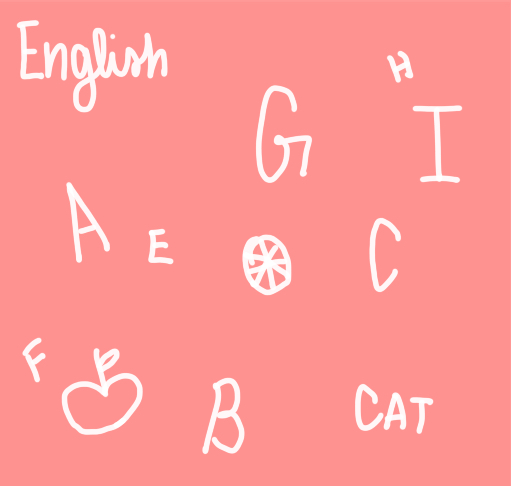 English
H
G I
A E C
F B CAT